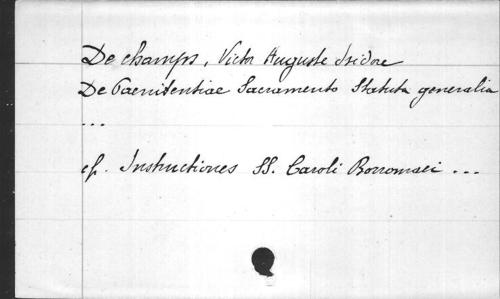 De champs, Victor Auguste Isidore
De Paenitentiae Sacramento Statuta generalia
...
cf. Instructiones SS. Caroli Borromaei ...